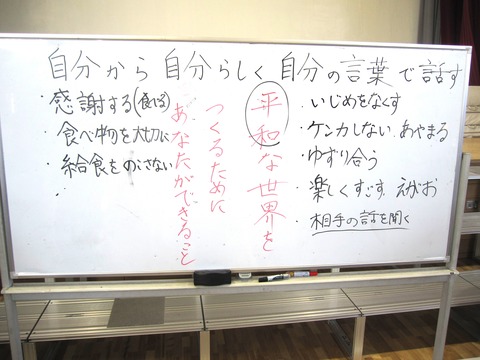 自分から自分らしく自分の言葉で話す
・感謝する(食べる)
・食べ物を大切に
・給食をのこさない
・
平和な世界を
つくるために
あなたができること
・いじめをなくす
・ケンカしない あやまる
・ゆずり合う
・楽しくすごす えがお
・相手の話を聞く